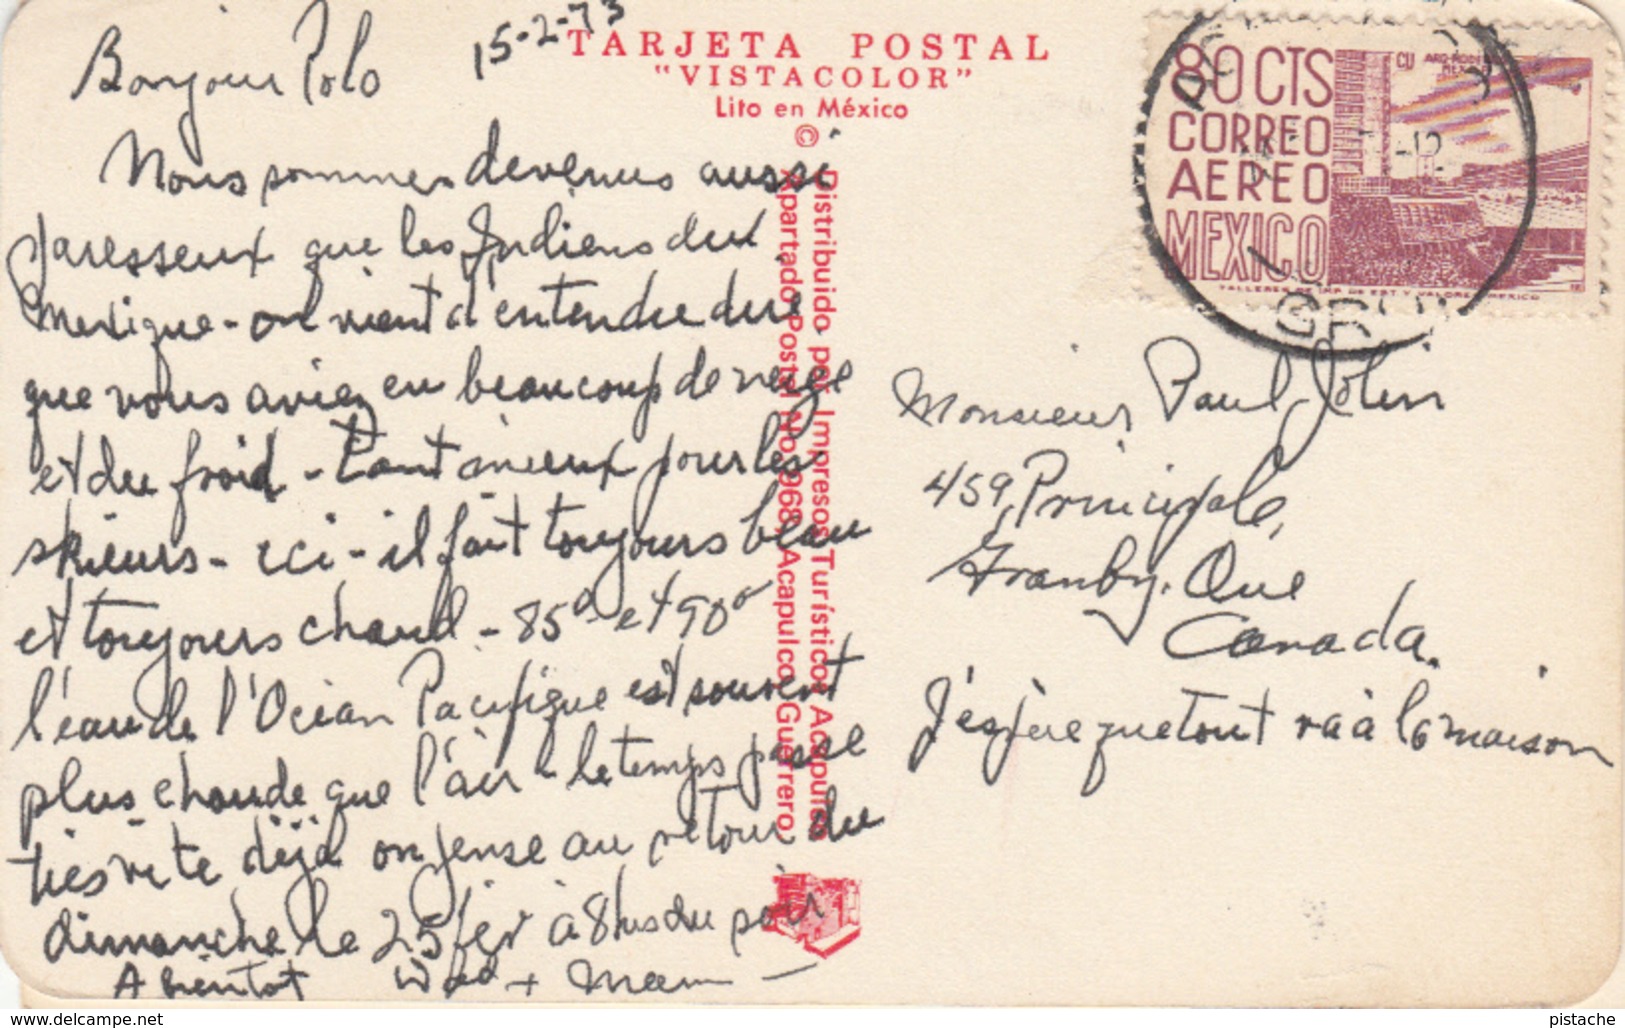 15-2-73
Bonjour Polo
Nous sommes devenus aussi
paresseux que les Indiens du
Mexique - on vient d'entendre dire
que vous aviez eu beaucoup de neige
et du froid - Tant mieux pour les
skieurs - ici - il fait toujours beau
et toujours chaud - 85° et 90°
l'eau de l'Océan Pacifique est souvent
plus chaude que l'air - le temps passe
très vite déjà on pense au retour du
dimanche le 25 fév à 8 hrs du soir
A bientot Dad + Mam -
TARJETA POSTAL
"VISTACOLOR"
Lito en México
©
Distribuido por Impresos Turísticos Acapulco
Apartado Postal No. 968, Acapulco, Guerrero.
80 CTS
CORREO
AEREO
MEXICO
CU ARQ. MODERNA
MEXICO
TALLERES DE IMP. DE EST. Y VALORES-MEXICO
Monsieur Paul Jolin
459, Principale,
Granby. Que
Canada.
J'espère que tout va à la maison
pistache
www.delcampe.net